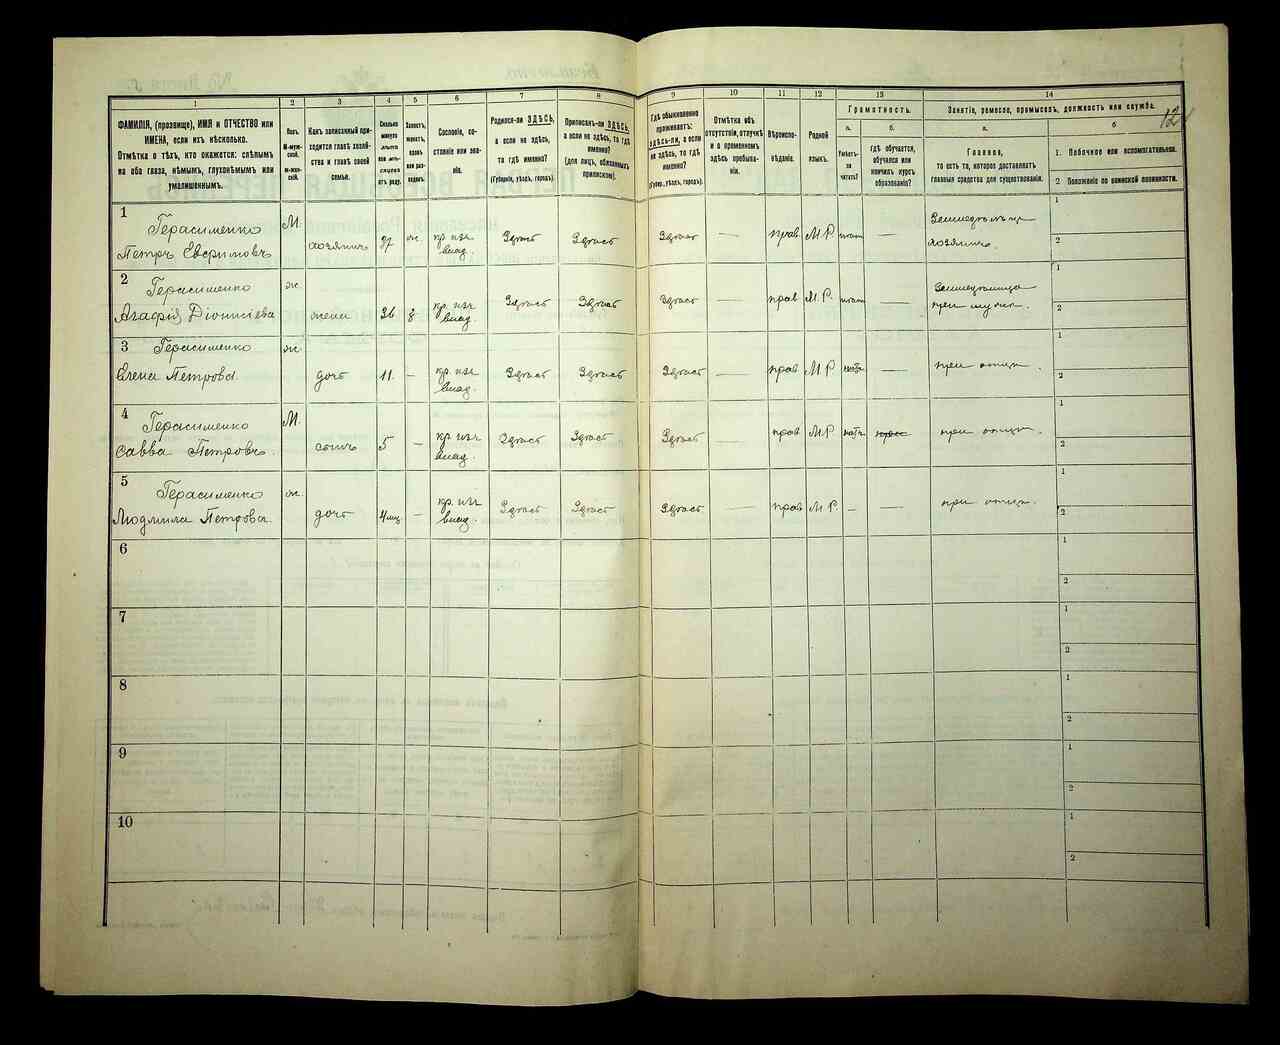 1
2
3
4
5
6
7
8
9
10
11
12
13
14
ФАМИЛІЯ, (прозвище), ИМЯ и ОТЧЕСТВО или
ИМЕНА, если ихъ нѣсколько.
Отмѣтка о тѣхъ, кто окажется: слѣпымъ
на оба глаза, нѣмымъ, глухонѣмымъ или
умалишеннымъ.
Полъ.
М-муж-
ской.
Ж-жен-
скій.
Какъ записанный при-
ходится главѣ хозяй-
ства и главѣ своей
семьи.
Сколько
минуло
лѣтъ
или мѣся-
цевъ
отъ роду.
Холостъ,
женатъ,
вдовъ
или раз-
веденъ.
Сословіе, со-
стояніе или зва-
ніе.
Родился-ли ЗДѢСЬ,
а если не здѣсь,
то гдѣ именно?
(Губернія, уѣздъ, городъ).
Приписанъ-ли ЗДѢСЬ,
а если не здѣсь, то гдѣ
именно?
(для лицъ, обязанныхъ
припиской).
Гдѣ обыкновенно
проживаетъ:
ЗДѢСЬ-ли, а если
не здѣсь, то гдѣ
именно?
(Губерн., уѣздъ, городъ).
Отмѣтка объ
отсутствіи, отлучкѣ
и о временномъ
здѣсь пребыва-
ніи.
Вѣроиспо-
вѣданіе.
Родной
языкъ.
Грамотность.
а.
б.
Умѣетъ-
ли
читать?
Гдѣ обучается,
обучался или
кончилъ курсъ
образованія?
Занятіе, ремесло, промыселъ, должность или служба.
а.
б
Главное,
то есть то, которое доставляетъ
главныя средства для существованія.
1. Побочное или вспомогательное.
2 Положеніе по воинской повинности.
1
Герасименко М.
Петръ Евфимовъ хозяинъ 37 ж. кр. изъ
влад. Здѣсь Здѣсь Здѣсь — прав. М.Р. —
хозяинъ.
1
2
2
Герасименко ж.
Агафія Діонисіева жена 36 з кр. изъ
влад. Здѣсь Здѣсь Здѣсь — прав М.Р. —
при мужѣ.
1
2
3 Герасименко ж.
Елена Петрова. дочь 11. — кр. изъ
влад. Здѣсь Здѣсь Здѣсь — прав М Р —
при отцѣ.
1
2
4
Герасименко М.
Савва Петровъ. сынъ 5 — кр. изъ
влад. Здѣсь Здѣсь Здѣсь — прав М Р
при отцѣ.
1
2
5
Герасименко ж.
Людмила Петрова. дочь 4 мц — кр. изъ
влад. Здѣсь Здѣсь Здѣсь — прав М Р. — —
при отцѣ.
1
2
6
1
2
7
1
2
8
1
2
9
1
2
10
1
2